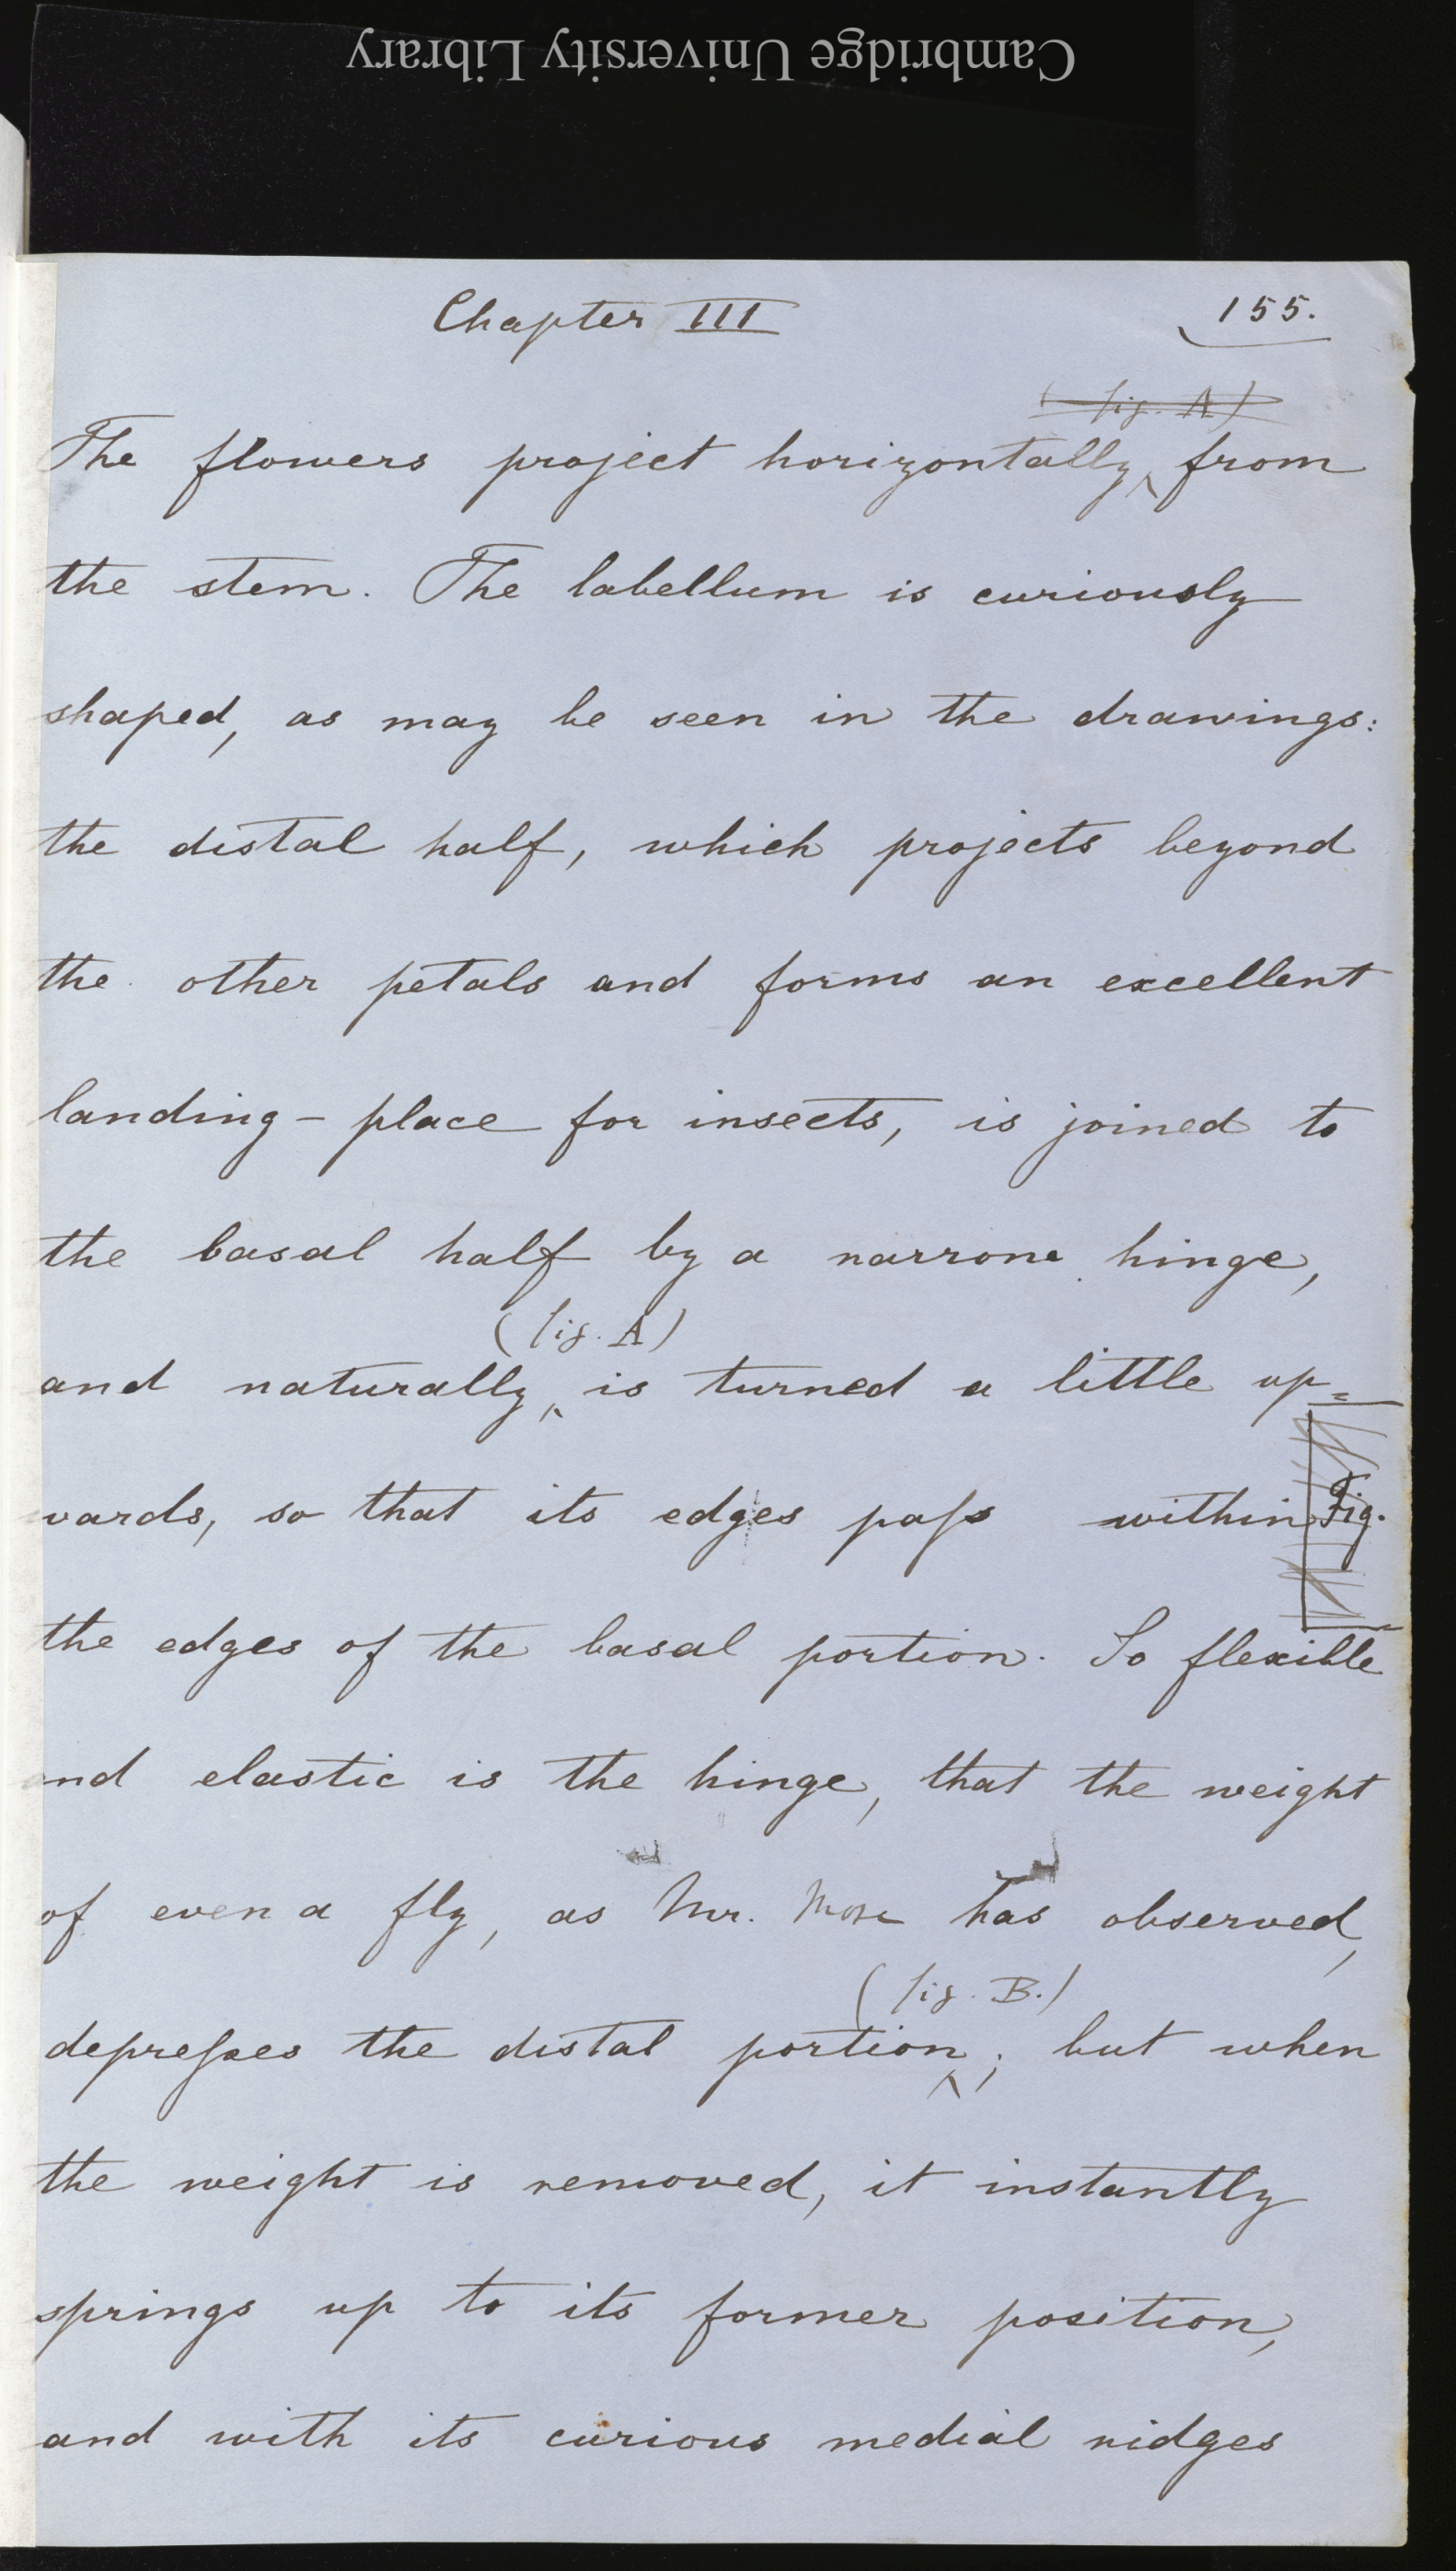 Cambridge University Library
Chapter III
155.
(fig. A)
The flowers project horizontally from
the stem. The labellum is curiously
shaped, as may be seen in the drawings:
the distal half, which projects beyond
the other petals and forms an excellent
landing-place for insects, is joined to
the basal half by a narrow hinge,
(fig. A)
and naturally is turned a little up=
wards, so that its edges pass within
Fig.
the edges of the basal portion. So flexible
and elastic is the hinge, that the weight
of even a fly, as Mr. More has observed,
(fig. B.)
depresses the distal portion; but when
the weight is removed, it instantly
springs up to its former position,
and with its curious medial ridges